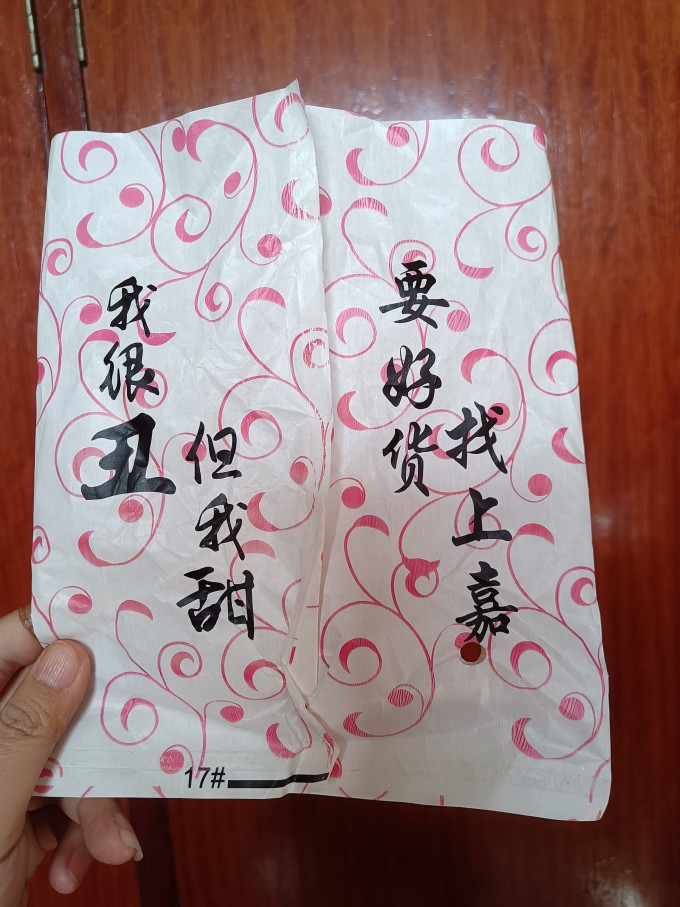 我很丑
但我甜
要好货
找上嘉
17#